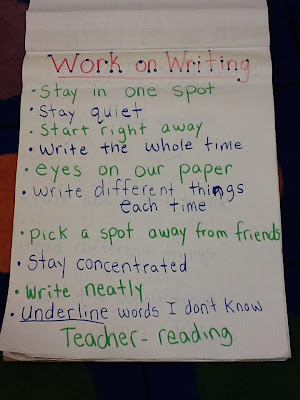 Work on Writing
• Stay in one spot
• Stay quiet
• Start right away
• Write the whole time
• eyes on our paper
• Write different things
each time
• Pick a spot away from friends
• Stay concentrated
• Write neatly
• Underline words I don't know
Teacher-reading